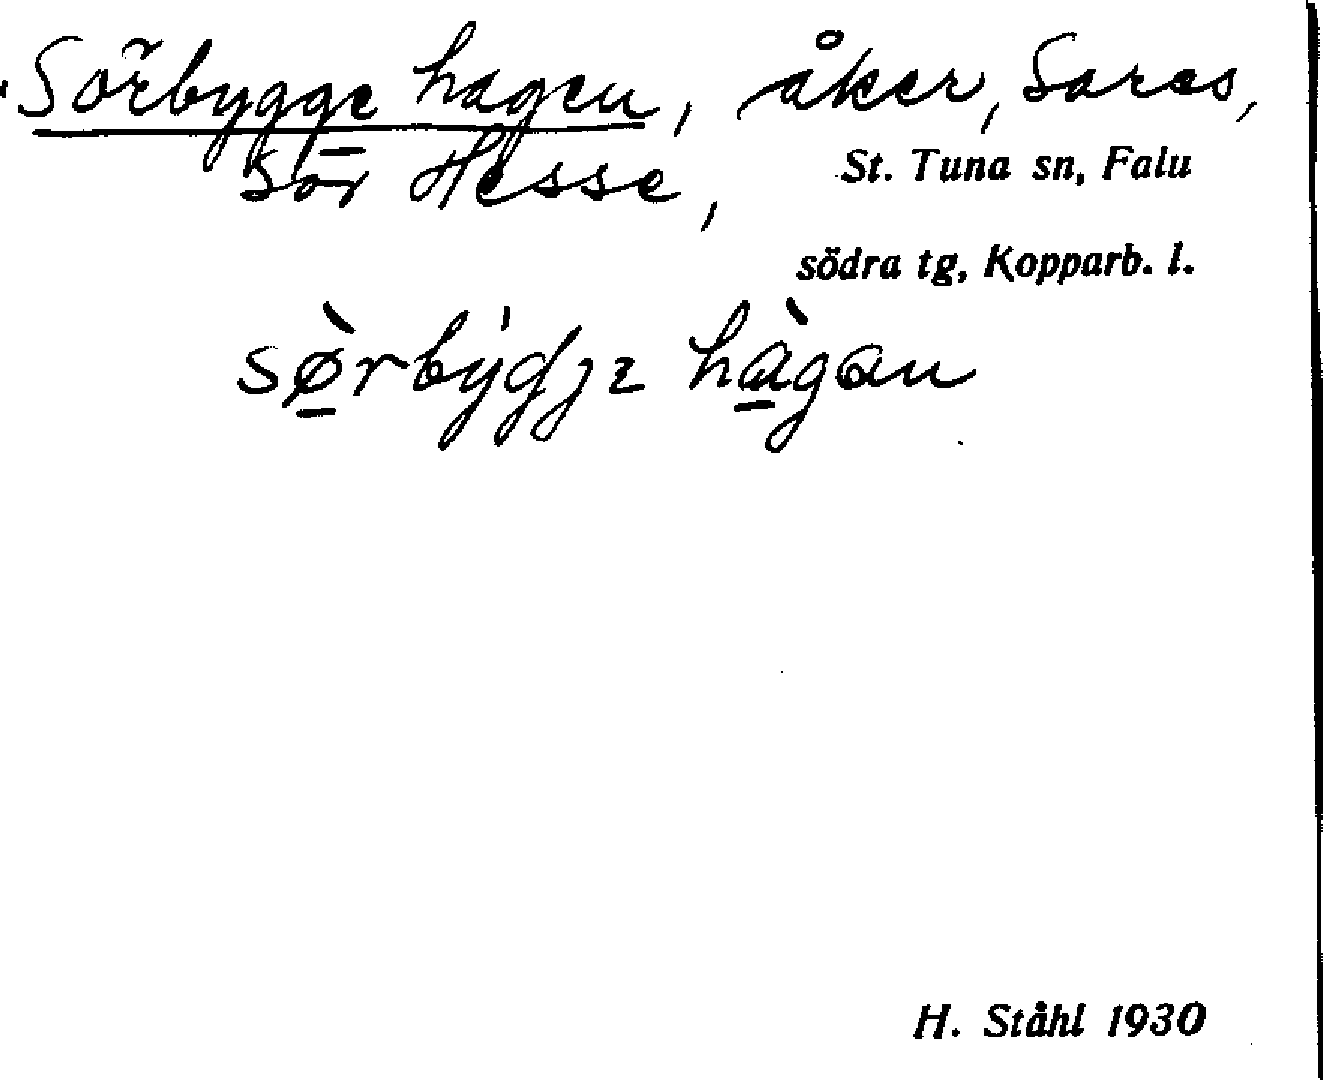 Sörbygge hagen, åker, Sares,
Sör Hesse,
St. Tuna sn, Falu
södra tg, Kopparb. l.
sø̀rby̍djɩ hàgan
H. Ståhl 1930